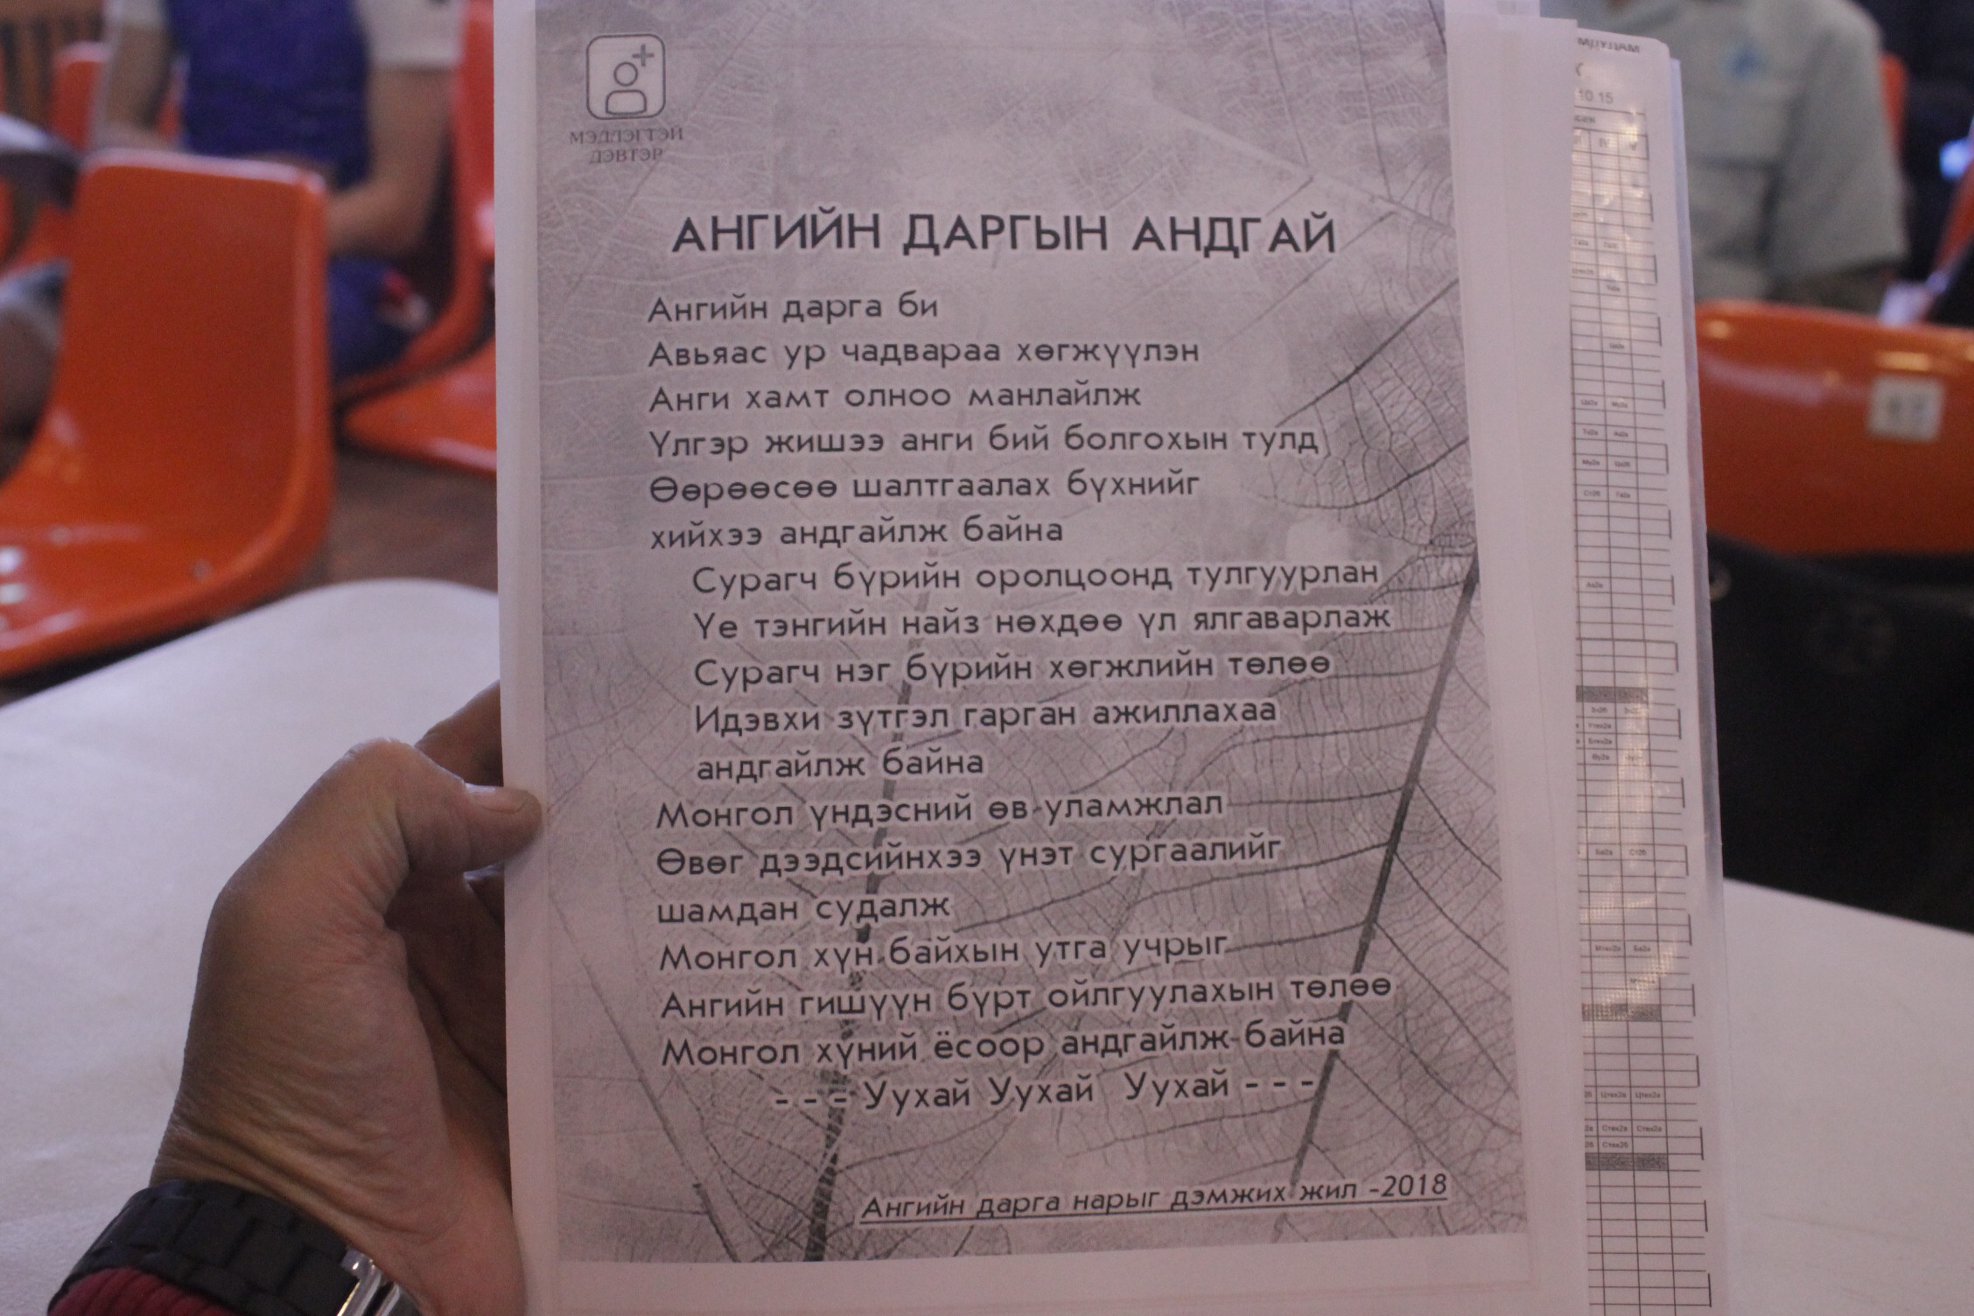 МЭДЛЭГТЭЙ
ДЭВТЭР
АНГИЙН ДАРГЫН АНДГАЙ
Ангийн дарга би
Авьяас ур чадвараа хөгжүүлэн
Анги хамт олноо манлайлж
Үлгэр жишээ анги бий болгохын тулд
Өөрөөсөө шалтгаалах бүхнийг
хийхээ андгайлж байна
Сурагч бүрийн оролцоонд тулгуурлан
Үе тэнгийн найз нөхдөө үл ялгаварлаж
Сурагч нэг бүрийн хөгжлийн төлөө
Идэвхи зүтгэл гарган ажиллахаа
андгайлж байна
Монгол үндэсний өв уламжлал
Өвөг дээдсийнхээ үнэт сургаалийг
шамдан судалж
Монгол хүн байхын утга учрыг
Ангийн гишүүн бүрт ойлгуулахын төлөө
Монгол хүний ёсоор андгайлж байна
- - - Уухай Уухай Уухай - - -
Ангийн дарга нарыг дэмжих жил -2018
10 15